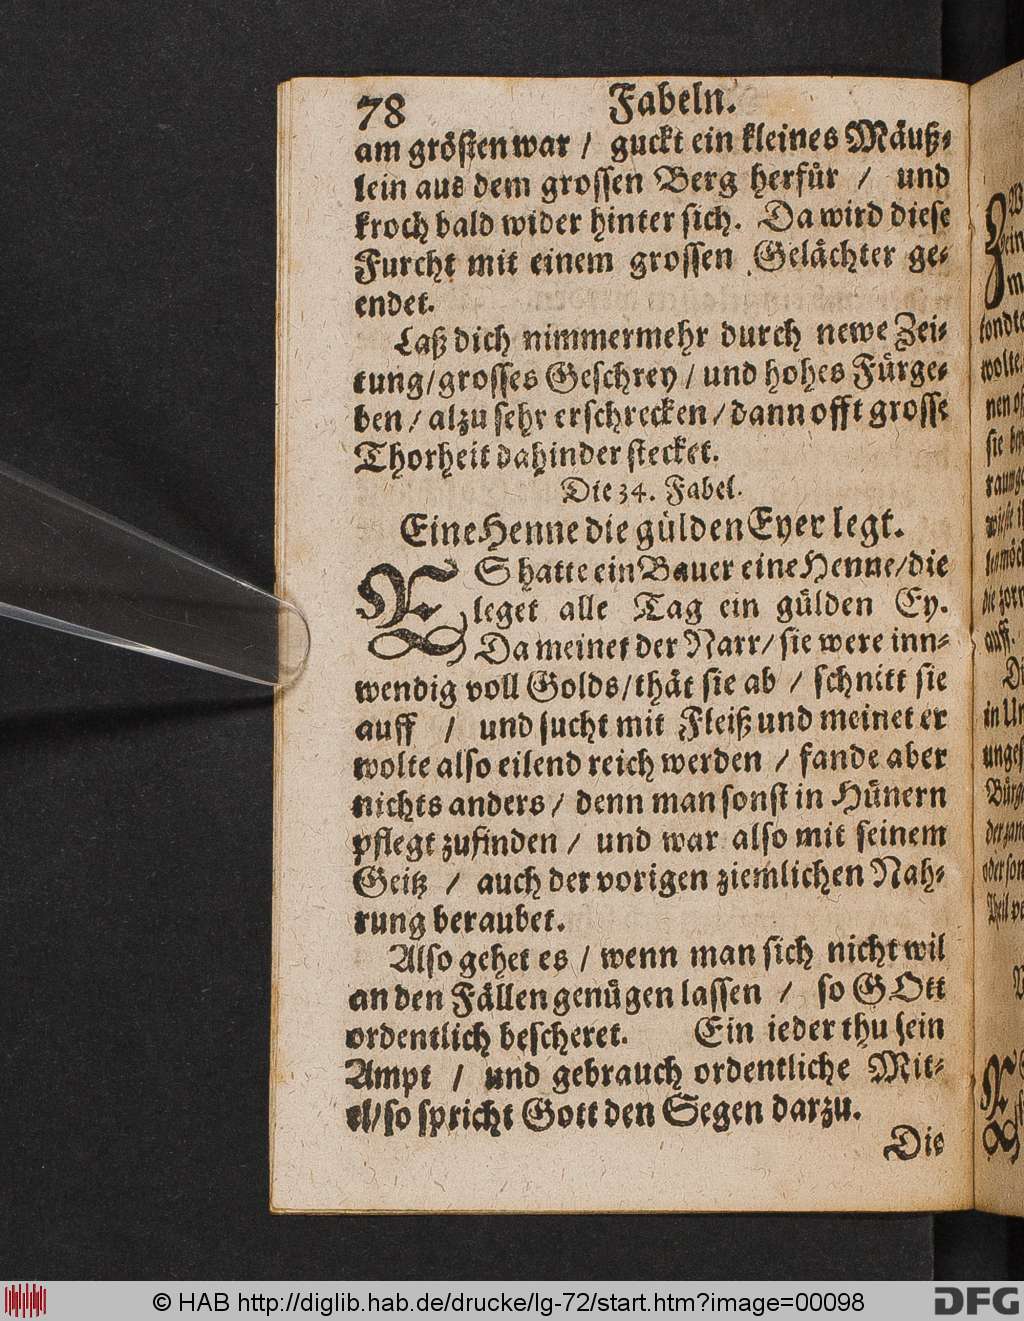 78 Fabeln.
am grösten war / guckt ein kleines Mäuß⸗
lein aus dem grossen Berg herfür / und
kroch bald wider hinter sich. Da wird diese
Furcht mit einem grossen Gelächter ge⸗
endet.
Laß dich nimmermehr durch newe Zei⸗
tung/grosses Geschrey / und hohes Fürge⸗
ben / alzu sehr erschrecken / dann offt grosse
Thorheit dahinder stecket.
Die 34. Fabel.
Eine Henne die gülden Eyer legt.
ES hatte ein Bauer eine Henne/die
leget alle Tag ein gülden Ey.
Da meinet der Narr/ sie were inn⸗
wendig voll Golds/thät sie ab / schnitt sie
auff / und sucht mit Fleiß und meinet er
wolte also eilend reich werden / fande aber
nichts anders / denn man sonst in Hünern
pflegt zufinden / und war also mit seinem
Geitz / auch der vorigen ziemlichen Nah⸗
rung beraubet.
Also gehet es / wenn man sich nicht wil
an den Fällen genügen lassen / so GOtt
ordentlich bescheret. Ein ieder thu sein
Ampt / und gebrauch ordentliche Mit⸗
el/so spricht Gott den Segen darzu.
Die
© HAB http://diglib.hab.de/drucke/lg-72/start.htm?image=00098
DFG